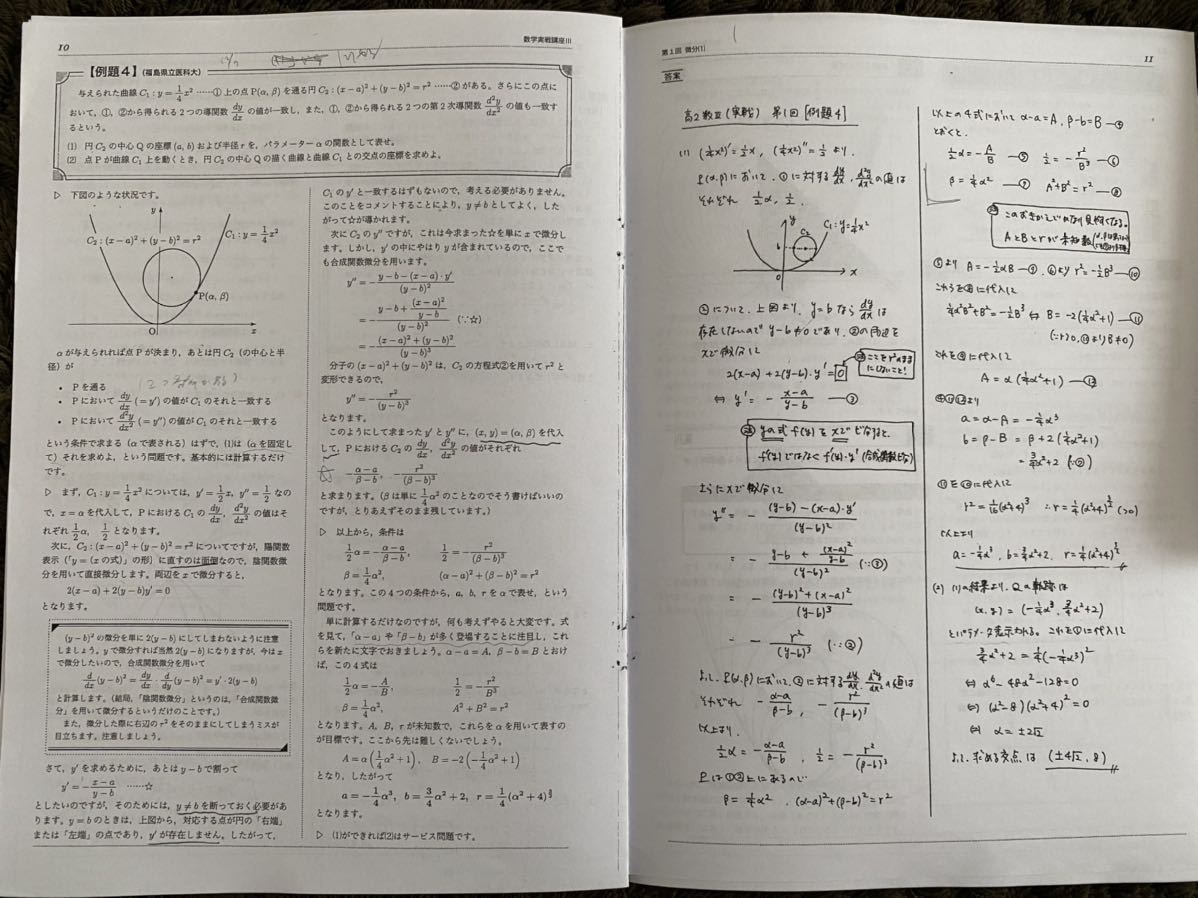 10
数学実戦講座III
【例題4】(福島県立医科大)
与えられた曲線 C₁ : y = 1/4 x² ……① 上の点 P(α, β) を通る円 C₂ : (x − a)² + (y − b)² = r² ……② がある。さらにこの点に
おいて，①，②から得られる2つの導関数 dy/dx の値が一致し，また，①，②から得られる2つの第2次導関数 d²y/dx² の値も一致す
るという。
(1) 円 C₂ の中心 Q の座標 (a, b) および半径 r を，パラメーター α の関数として表せ。
(2) 点 P が曲線 C₁ 上を動くとき，円 C₂ の中心 Q の描く曲線と曲線 C₁ との交点の座標を求めよ。
▷ 下図のような状況です。
y
C₂ : (x − a)² + (y − b)² = r²
C₁ : y = 1/4 x²
P(α, β)
O
x
α が与えられれば点 P が決まり，あとは円 C₂（の中心と半
径）が
• P を通る
• P において dy/dx (= y′) の値が C₁ のそれと一致する
• P において d²y/dx² (= y″) の値が C₁ のそれと一致する
という条件で求まる（α で表される）はずで，(1)は（α を固定し
て）それを求めよ，という問題です。基本的には計算するだけ
です。
▷ まず，C₁ : y = 1/4 x² については，y′ = 1/2 x，y″ = 1/2 なの
で，x = α を代入して，P における C₁ の dy/dx，d²y/dx² の値はそ
れぞれ 1/2 α，1/2 となります。
次に，C₂ : (x − a)² + (y − b)² = r² についてですが，陽関数
表示（「y = (x の式)」の形）に直すのは面倒なので，陰関数微
分を用いて直接微分します。両辺を x で微分すると，
2(x − a) + 2(y − b)y′ = 0
となります。
(y − b)² の微分を単に 2(y − b) にしてしまわないように注意
しましょう。y で微分すれば当然 2(y − b) になりますが，今は x
で微分したいので，合成関数微分を用いて
d/dx (y − b)² = dy/dx · d/dy (y − b)² = y′ · 2(y − b)
と計算します。（結局，「陰関数微分」というのは，「合成関数微
分」を用いて微分するというだけのことです。）
また，微分した際に右辺の r² をそのままにしてしまうミスが
目立ちます。注意しましょう。
さて，y′ を求めるために，あとは y − b で割って
y′ = − (x − a)/(y − b) ……☆
としたいのですが，そのためには，y ≠ b を断っておく必要があ
ります。y = b のときは，上図から，対応する点が円の「右端」
または「左端」の点であり，y′ が存在しません。したがって，
C₁ の y′ と一致するはずもないので，考える必要がありません。
このことをコメントすることにより，y ≠ b としてよく，した
がって☆が導かれます。
次に C₂ の y″ ですが，これは今求まった☆を単に x で微分し
ます。しかし，y′ の中にやはり y が含まれているので，ここで
も合成関数微分を用います。
y″ = − (y − b − (x − a) · y′)/(y − b)²
= − (y − b + (x − a)²/(y − b))/(y − b)² (∵☆)
= − ((x − a)² + (y − b)²)/(y − b)³
分子の (x − a)² + (y − b)² は，C₂ の方程式②を用いて r² と
変形できるので，
y″ = − r²/(y − b)³
となります。
このようにして求まった y′ と y″ に，(x, y) = (α, β) を代入
して，P における C₂ の dy/dx，d²y/dx² の値がそれぞれ
− (α − a)/(β − b)，− r²/(β − b)³
と求まります。（β は単に 1/4 α² のことなのでそう書けばいいの
ですが，とりあえずそのまま残しています。）
▷ 以上から，条件は
1/2 α = − (α − a)/(β − b)　1/2 = − r²/(β − b)³
β = 1/4 α²，　(α − a)² + (β − b)² = r²
となります。この4つの条件から，a, b, r を α で表せ，という
問題です。
単に計算するだけなのですが，何も考えずやると大変です。式
を見て，「α − a」や「β − b」が多く登場することに注目し，これ
らを新たに文字でおきましょう。α − a = A，β − b = B とおけ
ば，この4式は
1/2 α = − A/B，　1/2 = − r²/B³
β = 1/4 α²，　A² + B² = r²
となります。A, B, r が未知数で，これらを α を用いて表すの
が目標です。ここから先は難しくないでしょう。
A = α(1/4 α² + 1)，　B = −2(1/4 α² + 1)
となり，したがって
a = − 1/4 α³，b = 3/4 α² + 2，r = 1/4 (α² + 4)^(3/2)
となります。
▷ (1)ができれば(2)はサービス問題です。
第1回 微分(1)
11
答案
高2数III(実戦) 第1回 [例題4]
(1) (1/4 x²)′ = 1/2 x, (1/4 x²)″ = 1/2 より
P(α,β)において、①に対する dy/dx, d²y/dx² の値は
それぞれ 1/2 α, 1/2.
y
C₁: y = 1/4 x²
C₂
b
0
x
②について、上図より、y=b なら dy/dx は
存在しないので y−b≠0 であり、②の両辺を
xで微分して
2(x−a) + 2(y−b)·y′ = 0
注 ここを r²のまま
にしないこと!
⇔ y′ = − (x−a)/(y−b) —③
注 yの式 f(y) を xで微分すると、
f′(y)ではなく f′(y)·y′ (合成関数微分)
さらにxで微分して
y″ = − ((y−b) − (x−a)·y′)/(y−b)²
= − (y−b + (x−a)²/(y−b))/(y−b)² (∵③)
= − ((y−b)² + (x−a)²)/(y−b)³
= − r²/(y−b)³ (∵②)
よって、P(α,β)において、②に対する dy/dx, d²y/dx² の値は
それぞれ − (α−a)/(β−b), − r²/(β−b)³
以上より、
1/2 α = − (α−a)/(β−b), 1/2 = − r²/(β−b)³
Pは①②上にあるので
β = 1/4 α², (α−a)² + (β−b)² = r²
以上の4式において α−a = A, β−b = B —④
とおくと、
1/2 α = − A/B —⑤ 1/2 = − r²/B³ —⑥
β = 1/4 α² —⑦ A² + B² = r² —⑧
注 このおきかえでかなり見やすくなる。
AとBとrが未知数
⑤より A = − 1/2 αB —⑨, ⑥より r² = − 1/2 B³ —⑩
これらを⑧に代入して
1/4 α²B² + B² = − 1/2 B³ ⇔ B = −2(1/4 α² + 1) —⑪
(∵ r>0, ⑩より B≠0)
これを⑨に代入して
A = α(1/4 α² + 1) —⑫
④⑪⑫より
a = α − A = − 1/4 α³
b = β − B = β + 2(1/4 α² + 1)
= 3/4 α² + 2 (∵⑦)
⑪を⑩に代入して
r² = 1/16 (α²+4)³ ∴ r = 1/4 (α²+4)^(3/2) (>0)
以上より
a = − 1/4 α³, b = 3/4 α² + 2, r = 1/4 (α²+4)^(3/2)
(2) (1)の結果より、Qの軌跡は
(x, y) = (− 1/4 α³, 3/4 α² + 2)
とパラメータ表示される。これを①に代入して
3/4 α² + 2 = 1/4 (− 1/4 α³)²
⇔ α⁶ − 48α² − 128 = 0
⇔ (α² − 8)(α² + 4)² = 0
⇔ α = ±2√2
よって、求める交点は (±4√2, 8)